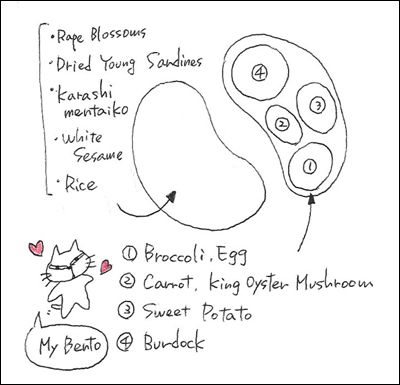 ・Rape Blossoms
・Dried Young Sardines
・Karashi
mentaiko
・White
Sesame
・Rice
④
③
②
①
① Broccoli, Egg
② Carrot, King Oyster Mushroom
③ Sweet Potato
④ Burdock
My Bento